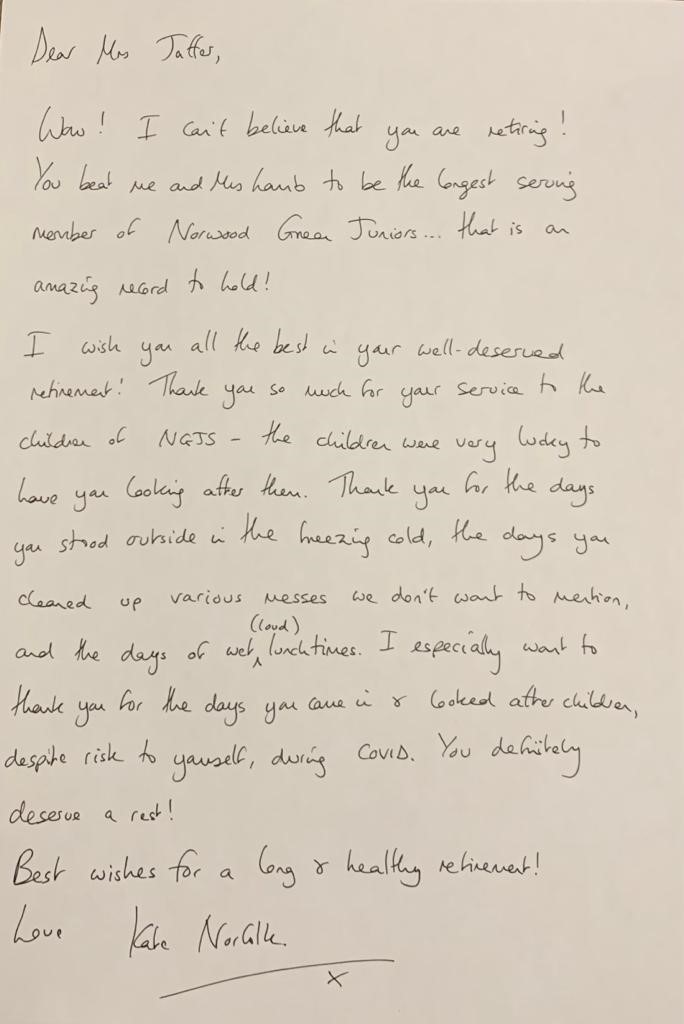 Dear Mrs Jaffer,
Wow! I can't believe that you are retiring!
You beat me and Mrs Lamb to be the longest serving
member of Norwood Green Juniors... that is an
amazing record to hold!
I wish you all the best in your well-deserved
retirement! Thank you so much for your service to the
children of NGJS - the children were very lucky to
have you looking after them. Thank you for the days
you stood outside in the freezing cold, the days you
cleaned up various messes we don't want to mention,
(loud)
and the days of wet ^ lunchtimes. I especially want to
thank you for the days you came in & looked after children,
despite risk to yourself, during COVID. You definitely
deserve a rest!
Best wishes for a long & healthy retirement!
Love Kate Norfolk.
x